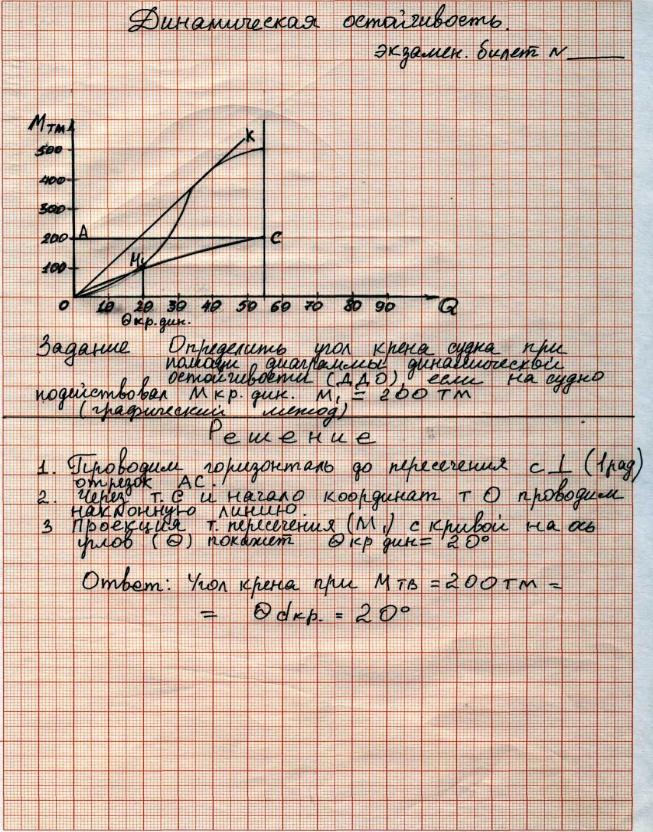 Динамическая остойчивость.
экзамен. билет N
Mтм
500
400
300
200
100
K
A
C
M₁
0 10 20 30 40 50 60 70 80 90 Q
Θкр.дин.
Задание Определить угол крена судна при
помощи диаграммы динамической
остойчивости (ДДО), если на судно
подействовал Мкр. дин. М₁ = 200 тм
(графический метод)
Решение
1. Проводим горизонталь до пересечения с ⊥ (1рад)
отрезок АС.
2. Через т. С и начало координат т О проводим
наклонную линию.
3 Проекция т. пересечения (М₁) с кривой на ось
углов (Θ) покажет Θкр дин = 20°
Ответ: Угол крена при Mтв = 200 тм =
= Θdкр. = 20°